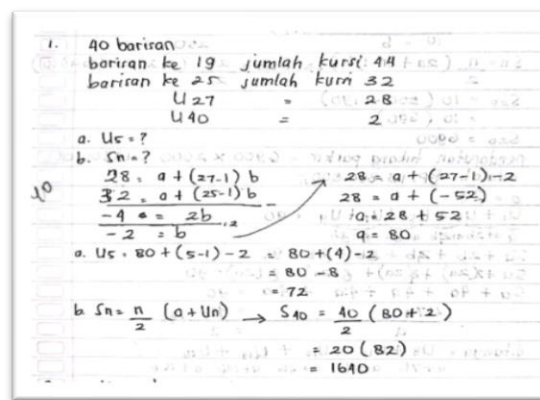 1. 40 barisan
barisan ke 19 jumlah kursi 44
barisan ke 25 jumlah kursi 32
U27 = 28
U40 = 2
a. U5 = ?
b. Sn = ?
28 = a + (27-1) b
32 = a + (25-1) b -
-4 = 2b
-2 = b
28 = a + (27-1) · -2
28 = a + (-52)
a = 28 + 52
a = 80
a. U5 = 80 + (5-1) - 2 = 80 + (4) - 2
= 80 - 8
= 72
b. Sn = n/2 (a + Un) → S40 = 40/2 (80 + 2)
= 20 (82)
= 1640
10